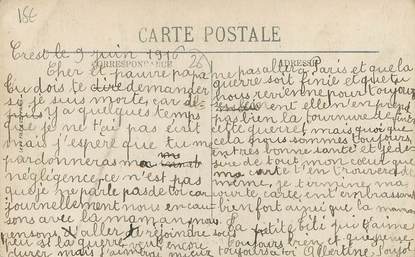 18€
CARTE POSTALE
CORRESPONDANCE
ADRESSE
Crest le 9 juin 1916
26
Cher et pauvre papa
Tu dois te dire demander
si je suis morte, car de-
puis y a quelques temps
que je ne t'ai pas écrit
mais j'espère que tu me
pardonneras ma
négligence, ce n'est pas
que je ne parle pas de toi car
journellement nous en cau-
sons avec la maman, nous
pensons d'aller te rejoindre
si la guerre veut encore
durer mais j'aimerais mieux
ne pas aller à Paris et que la
guerre soit finie et que tu
nous revienne pour toujours
elle n'en prend
pas bien la tournure
cette guerre, mais quoique
cela nous sommes toujours
en très bonne santé et je dé-
sire de tout mon coeur que
ma carte t'en trouvera de
même, je termine ma
carte, en t'embrassant
bien fort ainsi que la maman
La petite fille qui t'aime
toujours bien et qui pense
toujours à toi Albertine